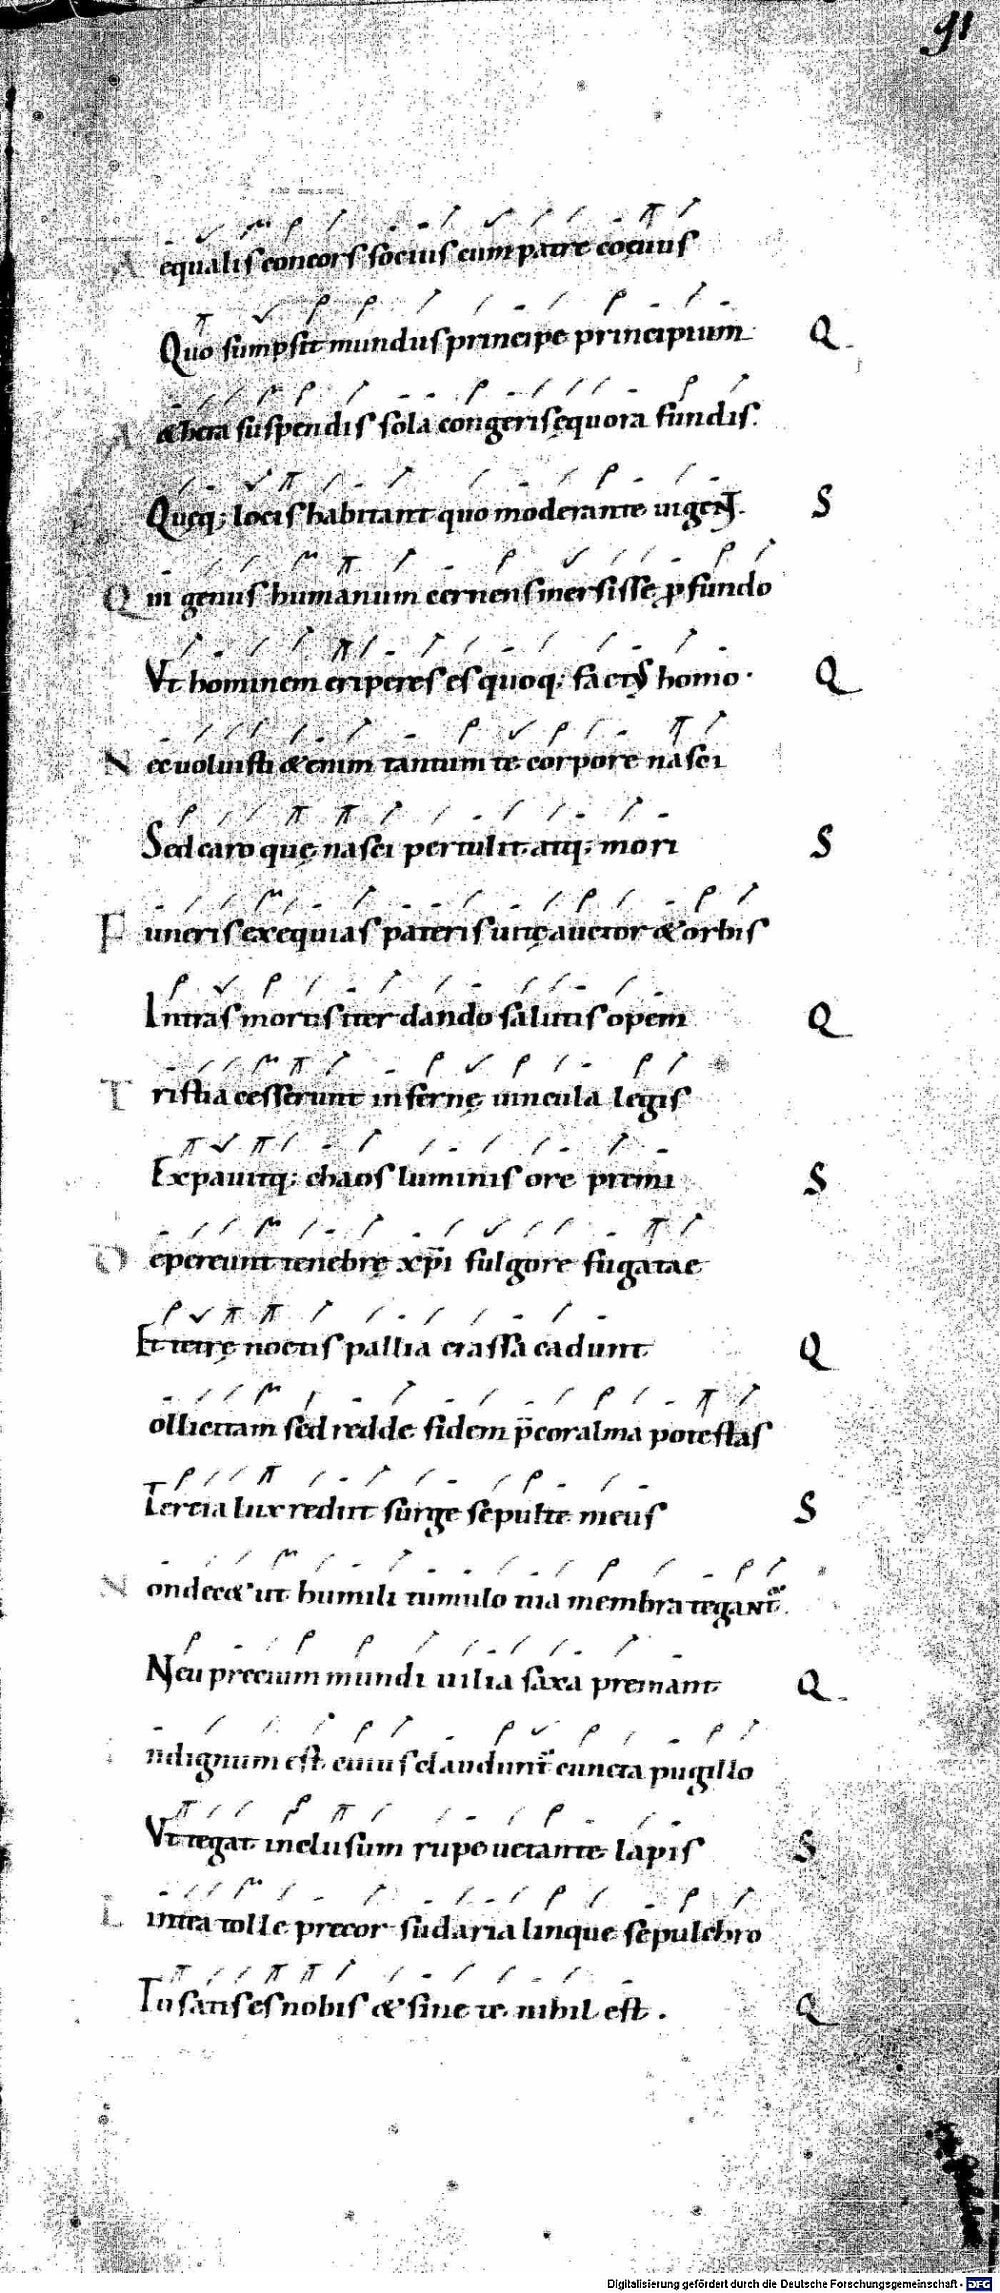 91
Aequalis concors socius cum patre coęuus
Quo sumpsit mundus principe principium Q
Aethera suspendis sola congeris ęquora fundis.
Quęq; locis habitant quo moderante uigent. S
Qui genus humanum cernens mersisse pfundo
Vt hominem eriperes es quoq; factus homo. Q
Nec uoluisti &enim tantum te corpore nasci
Sed caro quę nasci pertulit atq; mori S
Funeris exequias pateris uitę auctor & orbis
Intras mortis iter dando salutis opem Q
Tristia cesserunt infernę uincula legis
Expauitq; chaos luminis ore premi S
Depereunt tenebrę xp̄i fulgore fugatae
Et tetrę noctis pallia crassa cadunt Q
ollicitam sed redde fidem p̄cor alma potestas
Tercia lux rediit surge sepulte meus S
Non dec& ut humili tumulo tua membra tegant.
Neu precium mundi uilia saxa premant Q
Indignum est cuius clauduntʳ cuncta pugillo
Vt tegat inclusum rupe uetante lapis S
Lintea tolle precor sudaria linque sepulchro
Tu satis es nobis & sine te nihil est. Q
Digitalisierung gefördert durch die Deutsche Forschungsgemeinschaft - DFG